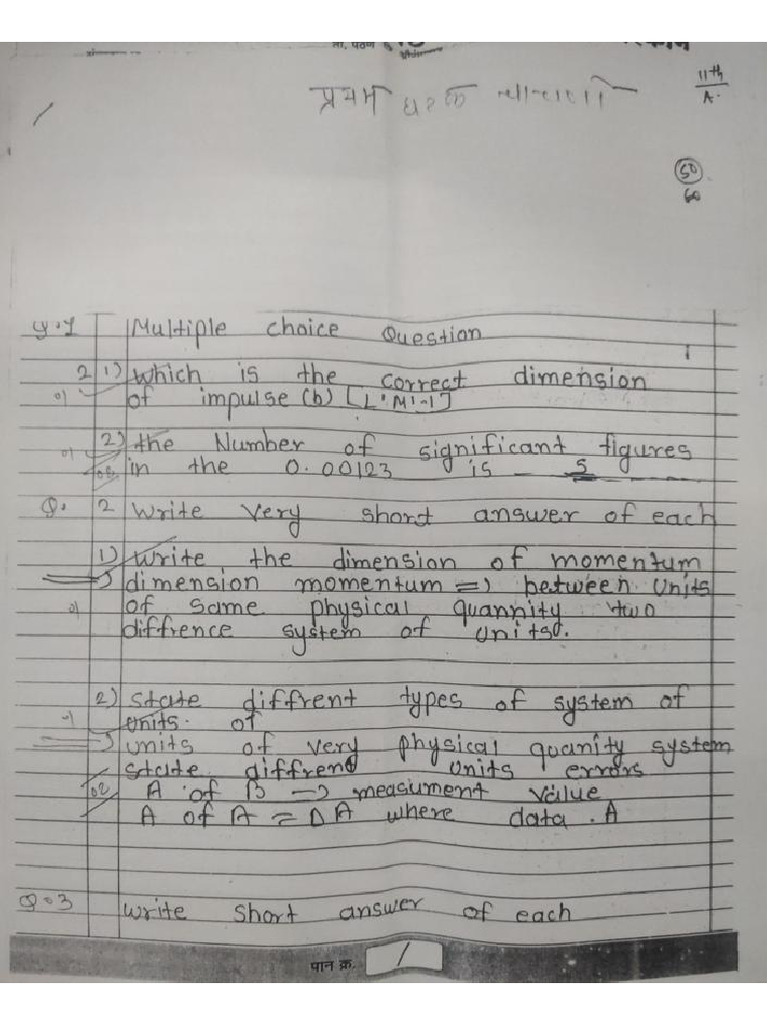 ता. पैठण
प्रथम घटक चाचणी
11th
A.
50
60
Q.1 Multiple choice Question
1) which is the correct dimension
of impulse (b) [L¹M¹-1]
2) the Number of significant figures
in the 0.00123 is 5
02
Q. 2 Write very short answer of each
1) Write the dimension of momentum
=> dimension momentum => between units
of same physical quannity two
diffrence system of units.
2) State diffrent types of system of
units. of
=> units of very physical quanity system
state diffrend units errors
02 A of B -> measument value
A of A = ΔA where data . A
Q.3 Write short answer of each
पान क्र. 1